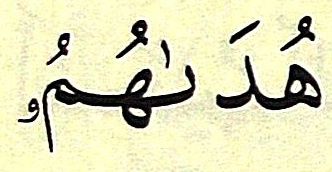 هُدَىٰهُمُۥ